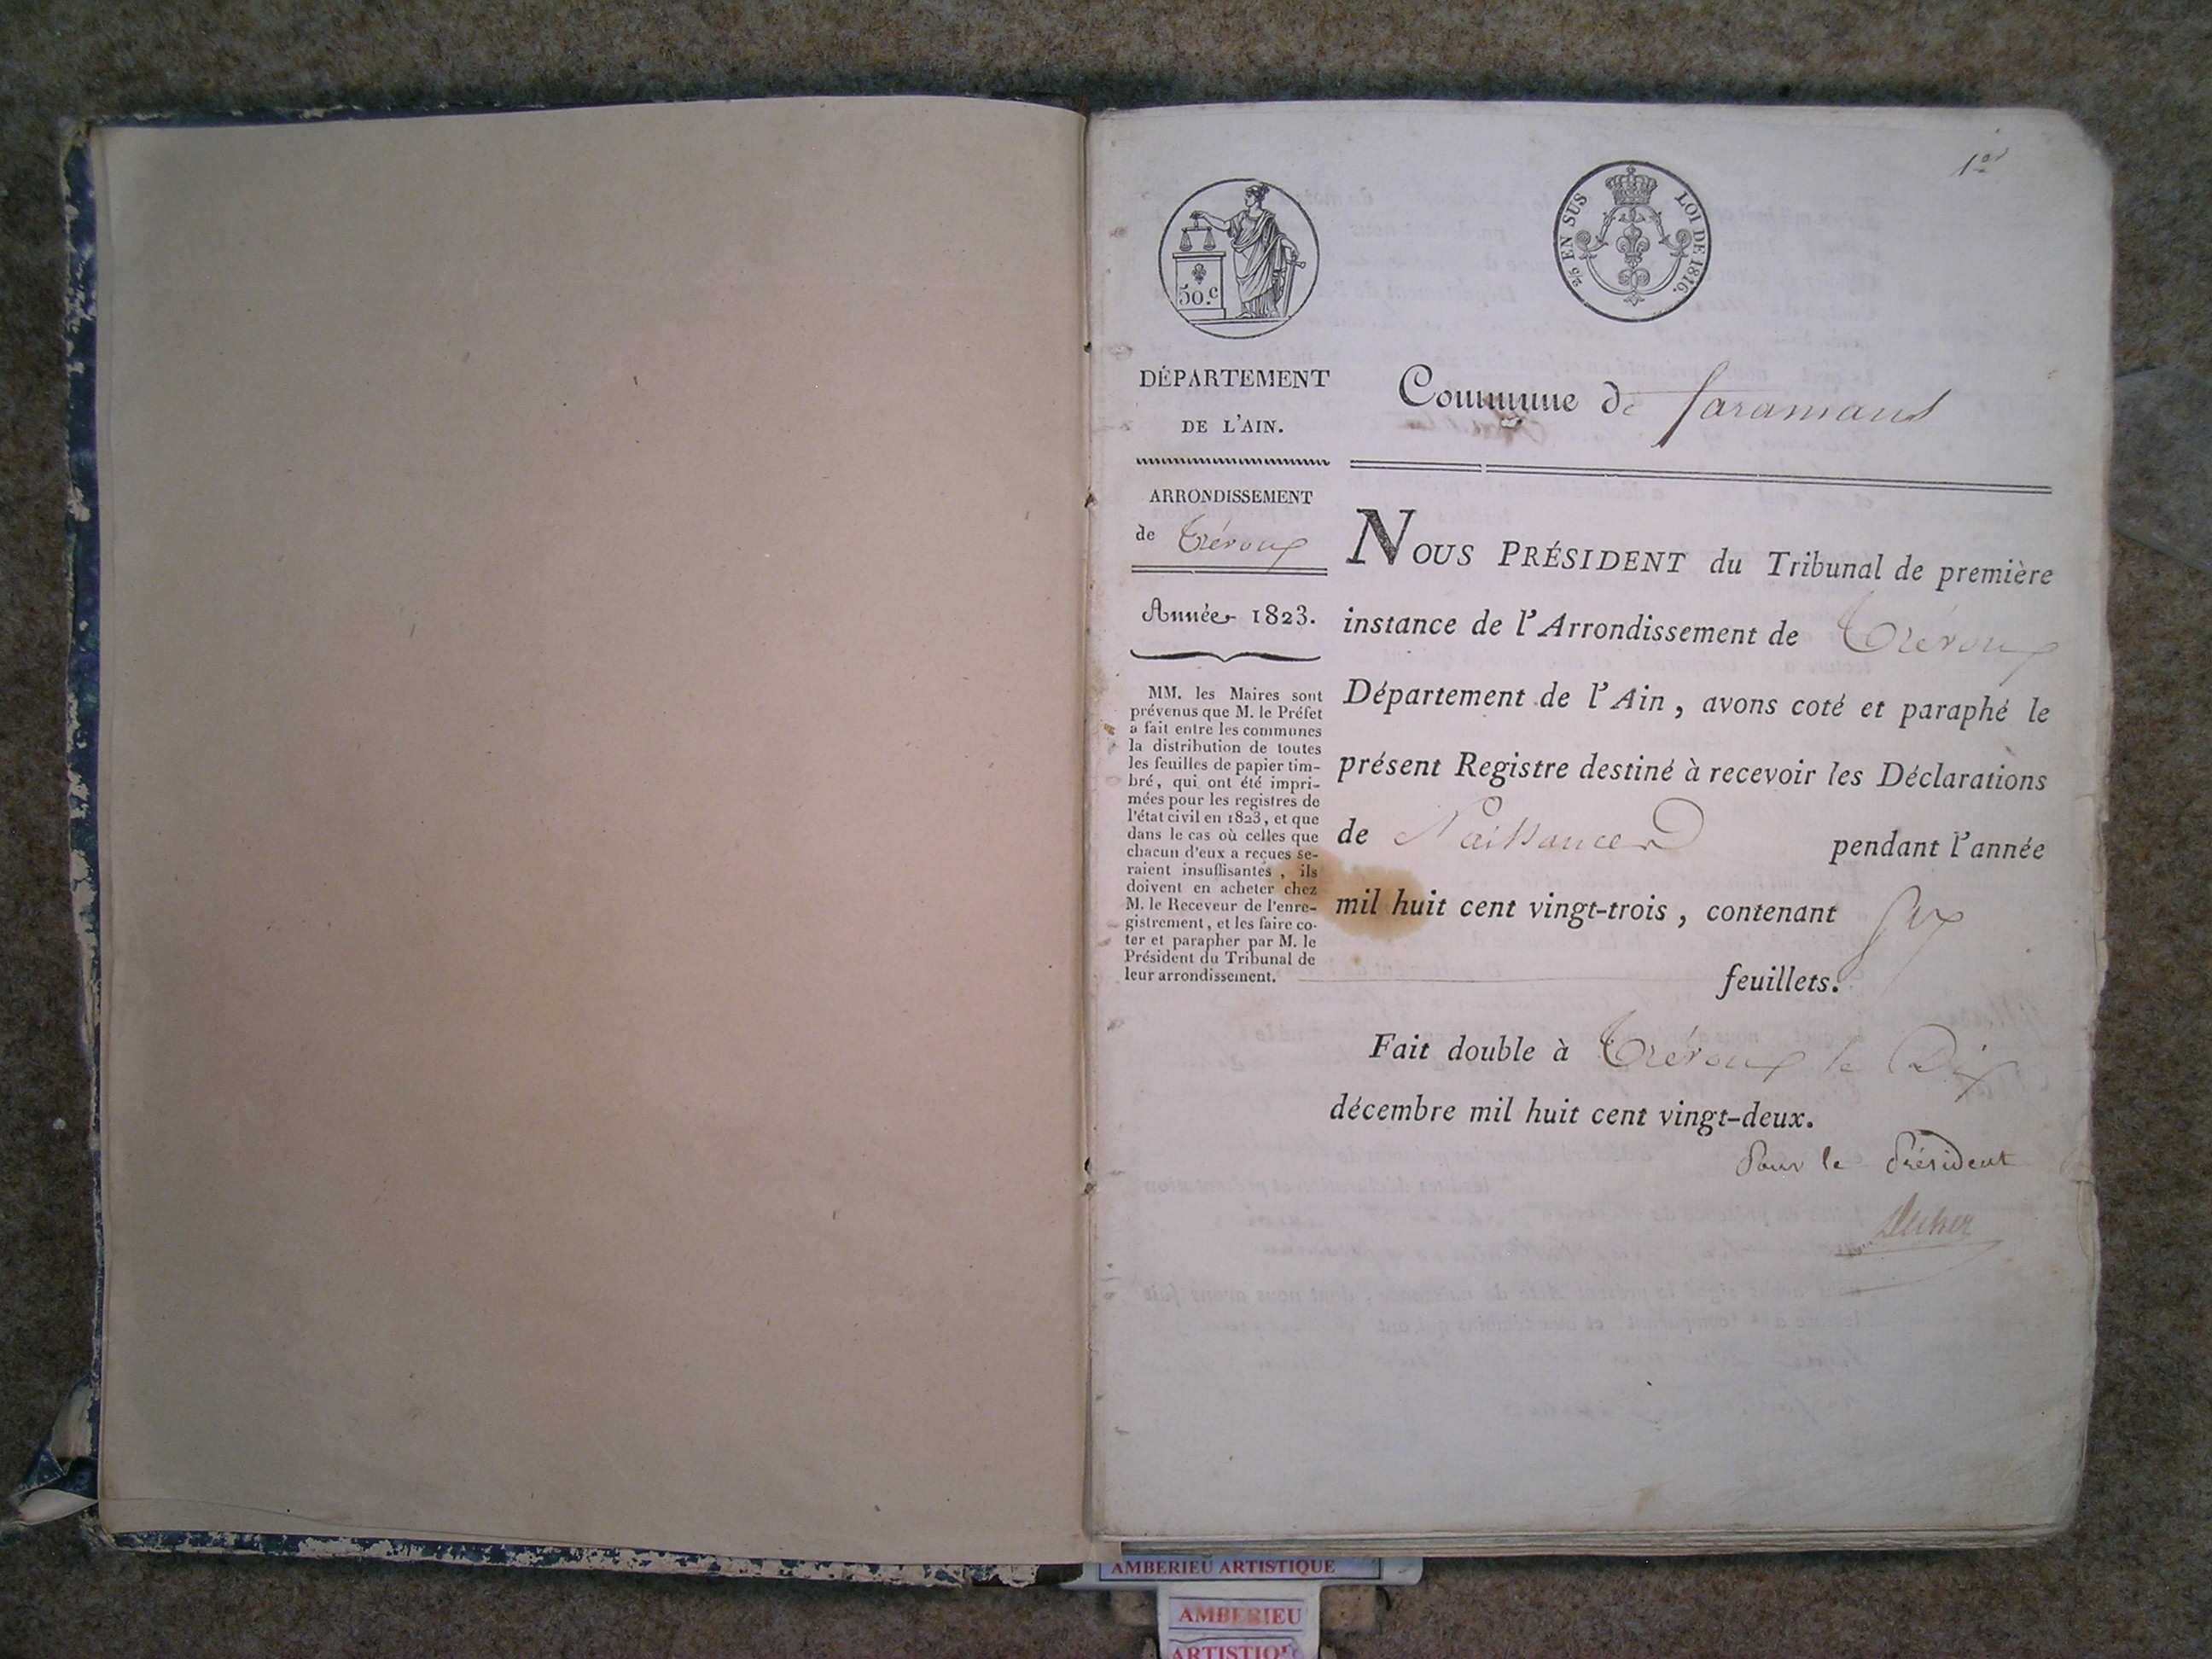 1er
50.c
2/5 EN SUS LOI DE 1816.
DÉPARTEMENT
DE L'AIN.
ARRONDISSEMENT
de Trévoux
Année 1823.
MM. les Maires sont
prévenus que M. le Préfet
a fait entre les communes
la distribution de toutes
les feuilles de papier tim-
bré, qui ont été impri-
mées pour les registres de
l'état civil en 1823, et que
dans le cas où celles que
chacun d'eux a reçues se-
raient insuffisantes, ils
doivent en acheter chez
M. le Receveur de l'enre-
gistrement, et les faire co-
ter et parapher par M. le
Président du Tribunal de
leur arrondissement.
Commune de faramans
NOUS PRÉSIDENT du Tribunal de première
instance de l'Arrondissement de Trévoux
Département de l'Ain, avons coté et paraphé le
présent Registre destiné à recevoir les Déclarations
de Naissances pendant l'année
mil huit cent vingt-trois, contenant Six
feuillets.
Fait double à Trévoux le Dix
décembre mil huit cent vingt-deux.
Pour le Président
AMBERIEU ARTISTIQUE
AMBERIEU
ARTISTIQUE